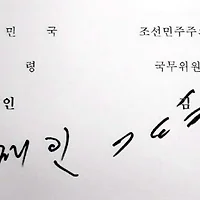 민 국 조선민주주
령 국무위원
인 김
재인